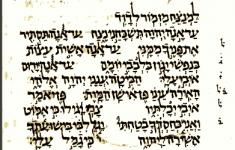 למנצח מזמור לדוד
עד אנה יהוה תשכחני נצח עד אנה תסתיר
את פניך ממני עד אנה אשית עצות
בנפשי יגון בלבבי יומם עד אנה ירום
איבי עלי הביטה ענני יהוה אלהי
האירה עיני פן אישן המות פן יאמר
איבי יכלתיו צרי יגילו כי אמוט
ואני בחסדך בטחתי יגל לבי בישועתך
אשירה ליהוה כי גמל עלי